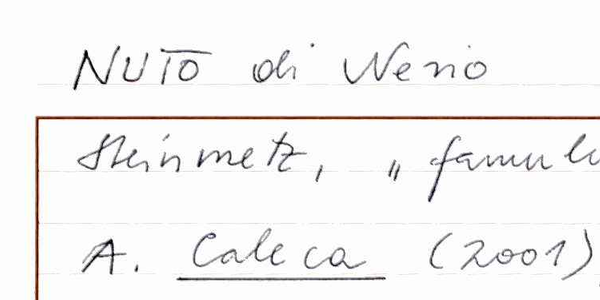 NUTO di Nerio
Steinmetz, "famuli
A. Caleca (2001)